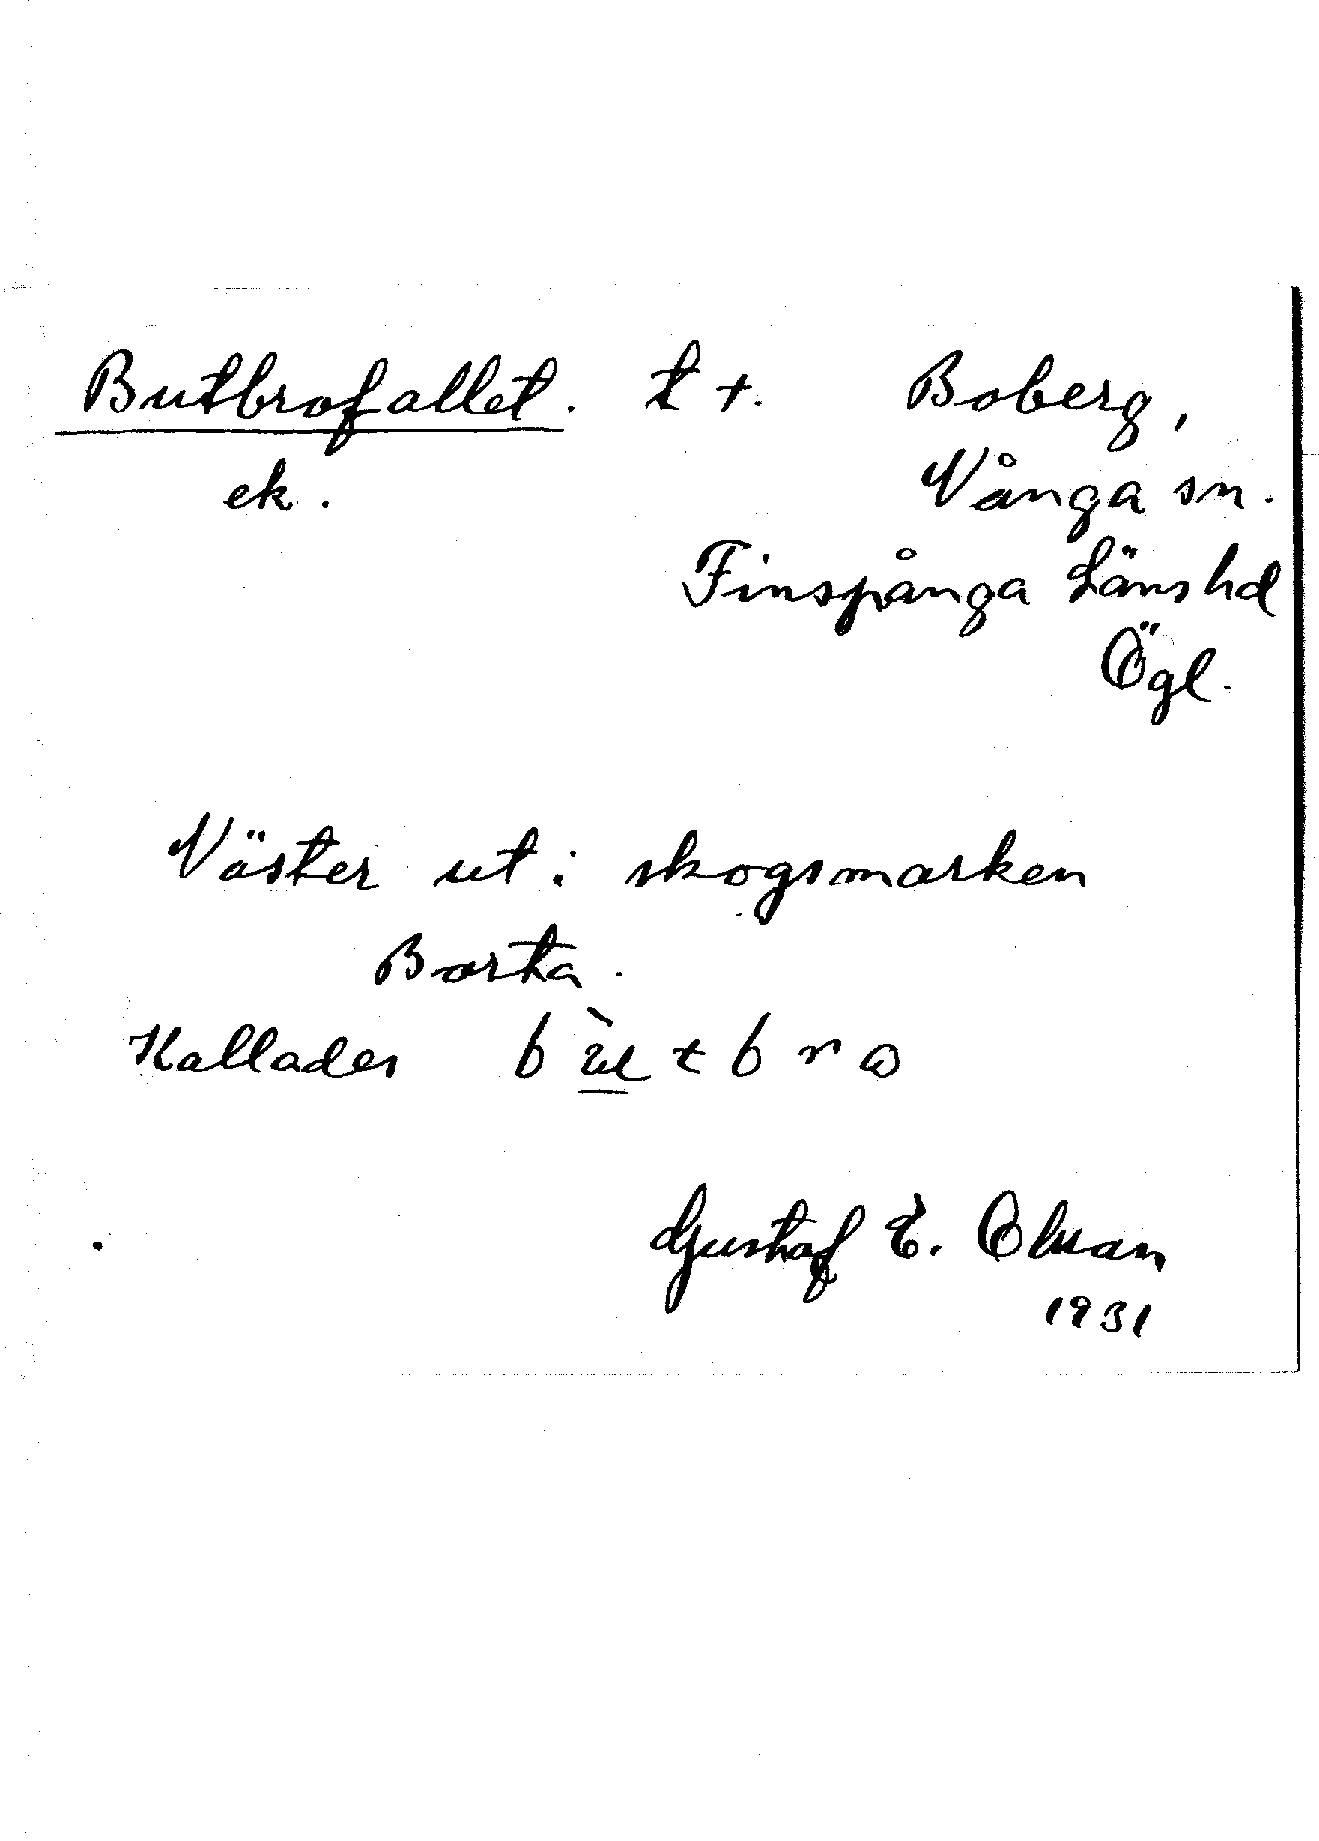 Butbrofallet. t +. Boberg,
ek. Vånga sn.
Finspånga Läns hd
Ögl.
Väster ut i skogsmarken
Borta.
Kallades
Gustaf E.
1931